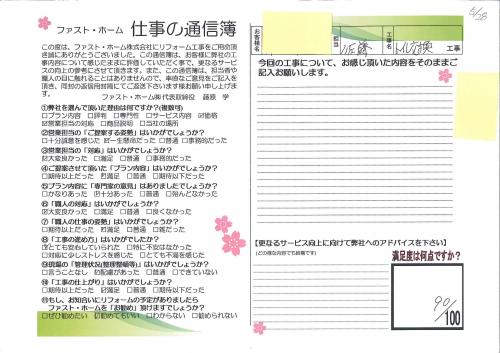 5/28
ファスト・ホーム 仕事の通信簿
この度は、ファスト・ホーム株式会社にリフォーム工事をご用命頂き誠にありがとうございました。この通信簿は、お客様に弊社の工事内容について感じたままに評価していただく事で、更なるサービスの向上の参考にさせて頂きます。また、この通信簿は、担当者や職人の目に触れることはありませんので、率直なご意見をご記入頂き、同封の返信用封筒にてご返送下さいます様お願い申し上げます。
ファスト・ホーム㈱代表取締役 藤原 学
①弊社を選んで頂いた理由は何ですか?(複数可)
□プラン内容 □評判 □専門性 □サービス内容 ☑価格
□営業担当の対応 □商品説明 □当社の場所
②営業担当の「ご提案する姿勢」はいかがでしょうか?
□十分誠意を感じた ☑一生懸命だった □普通 □事務的だった
③営業担当の「対応」はいかがでしょうか?
☑大変良かった □満足 □普通 □事務的だった
④ご提案させて頂いた「プラン内容」はいかがでしょうか?
□期待以上だった ☑満足 □普通 □期待以下だった
⑤プラン内容に「専門家の意見」はありましたでしょうか?
□かなりあった ☑十分あった □普通 □殆んどなかった
⑥「職人の対応」はいかがでしょうか?
☑大変良かった □満足 □普通 □良くなかった
⑦「職人の仕事の姿勢」はいかがでしょうか?
□期待以上だった ☑満足 □普通 □雑だった
⑧「工事の進め方」はいかがでしたか?
☑とても安心していられた □特に不安はなかった
□対応に少しストレスを感じた □とても不満を感じた
⑨現場の「管理状況(整理整頓等)」はいかがでしょうか?
□言うことなし ☑配慮があった □普通 □できていない
⑩「工事の仕上がり」はいかがでしょうか?
□期待以上だった ☑満足 □普通 □期待以下だった
⑪もし、お知合いにリフォームの予定がありましたら
ファスト・ホームを「お勧め」頂けますでしょうか?
□ぜひ勧めたい ☑勧めてもいい □わからない □勧められない
お客様名
担当 佐藤
工事名 トイレ交換 工事
今回の工事について、お感じ頂いた内容をそのままご記入お願いします。
【更なるサービス向上に向けて弊社へのアドバイスを下さい】
(どの様な内容でも結構です)
満足度は何点ですか?
90/100